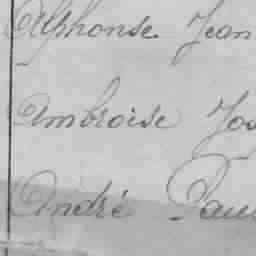 Alphonse Jean
Ambroise Jos
André Paul